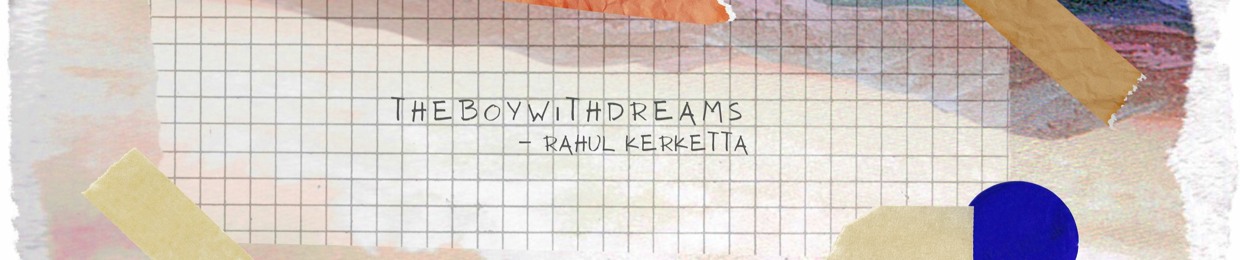 THEBOYWiTHDREAMS
- RAHUL KERKETTA